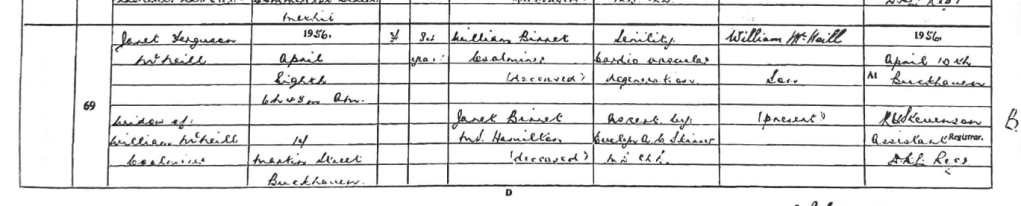 Methil
Janet Ferguson 1956. F William Birrel Senility William McNeill 1956.
McNeill April years Coalminer Cardio vascular April 10th
Eighth (deceased) degeneration Son At Buckhaven
6h 45m Am.
69
Widow of Janet Birrel As cert. by (present)
William McNeill M.S. Hamilton Evelyn A. C. Assistant Registrar.
Coalminer Street (deceased)
Buckhaven.
D
B